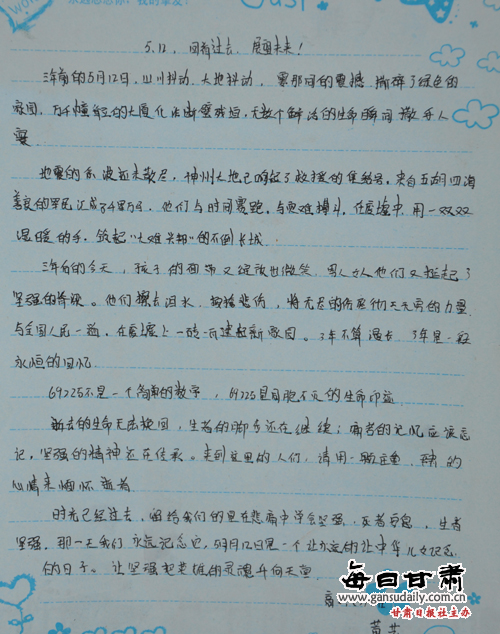 5.12, 回看过去, 展望未来!
三年前的5月12日, 山川抖动, 大地抖动, 霎那间的震撼, 撕碎了绿色的
家园, 万千幢的大厦化为断壁残垣, 无数个鲜活的生命瞬间撒手人
寰
地震的余波还未散尽, 神州大地已响起了救援的集结号, 来自五湖四海
善良的军民汇成了, 他们与时间赛跑, 与死难搏斗, 在废墟中, 用一双双
温暖的手, 筑起“大难兴邦”的不倒长城.
三年后的今天, 孩子的面带又绽放出微笑, 他们又挺起了
坚强的脊梁。他们擦去泪水, 悲伤, 将无尽的伤痛化无穷的力量,
与全国人民一道, 在废墟上一砖一瓦建起新家园。3年不算漫长, 3年是一段
永恒的回忆
69225不是一个简单的数字, 69225是同胞不灭的生命印迹
逝去的生命无法挽回, 生者的脚步还在继续; 痛苦的记忆应该忘
记, 坚强的精神还在传承。来到这里的人们, 请用一颗, 的
心情来缅怀逝者
时光已经过去, 留给我们的是在悲痛中学会坚强, 死者安息, 生者
坚强, 那一天我们永远记念它, 5月12日是一个让永远的让中华儿女记念
的日子。让坚强把英雄的灵魂升向天堂.
每日甘肃
www.gansudaily.com.cn
甘肃日报社主办